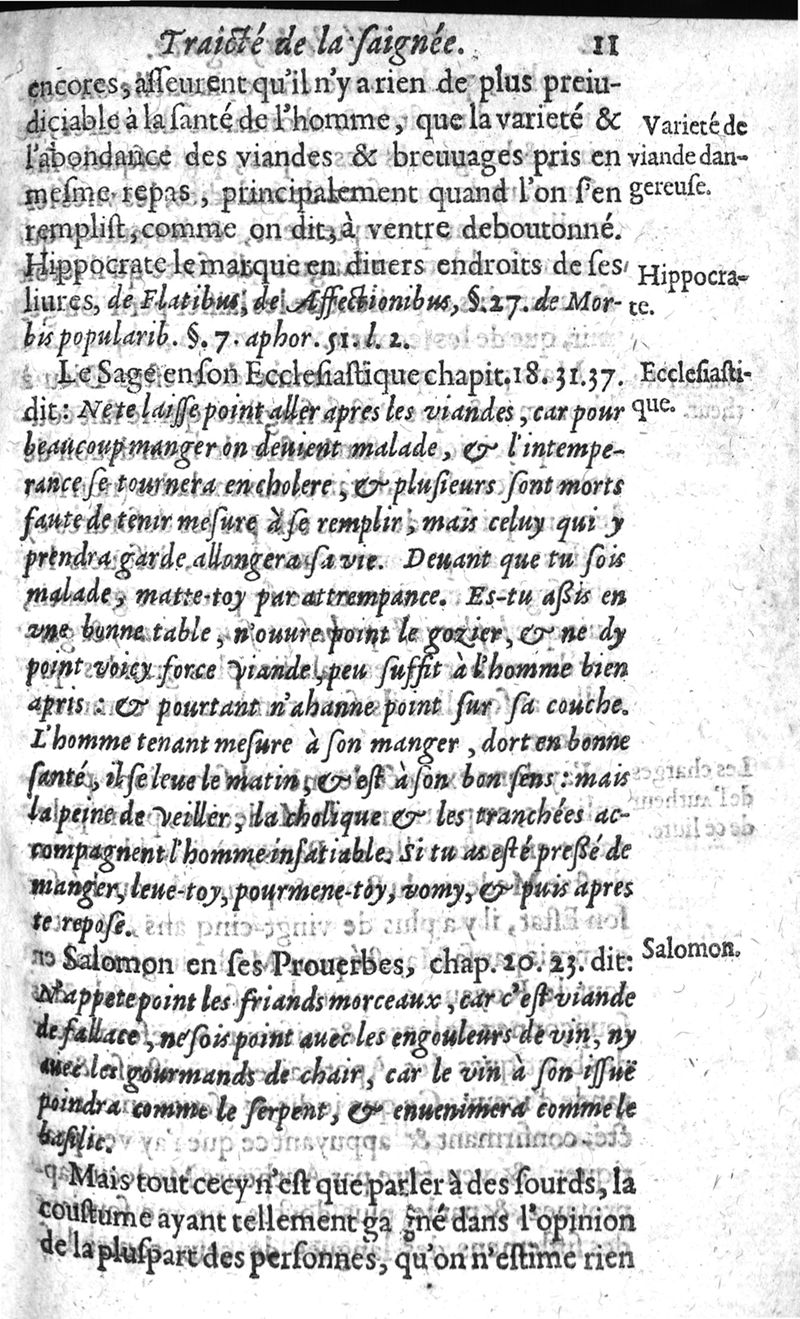 Traicté de la ſaignée. 11
encores, aſſeurent qu'il n'y a rien de plus preiu-
diciable à la ſanté de l'homme, que la varieté &
l'abondance des viandes & breuuages pris en
meſme repas, principalement quand l'on ſ'en
rempliſt, comme on dit, à ventre deboutonné.
Hippocrate le marque en diuers endroits de ſes
liures, de Flatibus, de Affectionibus, §. 27. de Mor-
bis popularib. §. 7. aphor. 51. l. 2.
Varieté de
viande dan-
gereuſe.
Hippocra-
te.
Le Sage en ſon Eccleſiaſtique chapit. 18. 31. 37.
dit: Ne te laiſſe point aller apres les viandes, car pour
beaucoup manger on deuient malade, & l'intempe-
rance ſe tournera en cholere, & pluſieurs ſont morts
faute de tenir meſure à ſe remplir, mais celuy qui y
prendra garde allongera ſa vie. Deuant que tu ſois
malade, matte-toy par attrempance. Es-tu aßis en
vne bonne table, n'ouure point le gozier, & ne dy
point voicy force viande, peu ſuffit à l'homme bien
apris: & pourtant n'ahanne point ſur ſa couche.
L'homme tenant meſure à ſon manger, dort en bonne
ſanté, il ſe leue le matin, & eſt à ſon bon ſens: mais
la peine de veiller, la cholique & les tranchées ac-
compagnent l'homme inſatiable. Si tu as eſté preßé de
manger, leue-toy, pourmene-toy, vomy, & puis apres
te repoſe.
Eccleſiaſti-
que.
Salomon en ſes Prouerbes, chap. 20. 23. dit:
N'appete point les friands morceaux, car c'eſt viande
de fallace, ne ſois point auec les engouleurs de vin, ny
auec les gourmands de chair, car le vin à ſon iſſuë
poindra comme le ſerpent, & enuenimera comme le
baſilic.
Salomon.
Mais tout cecy n'eſt que parler à des ſourds, la
couſtume ayant tellement ga gné dans l'opinion
de la pluſpart des perſonnes, qu'on n'eſtime rien